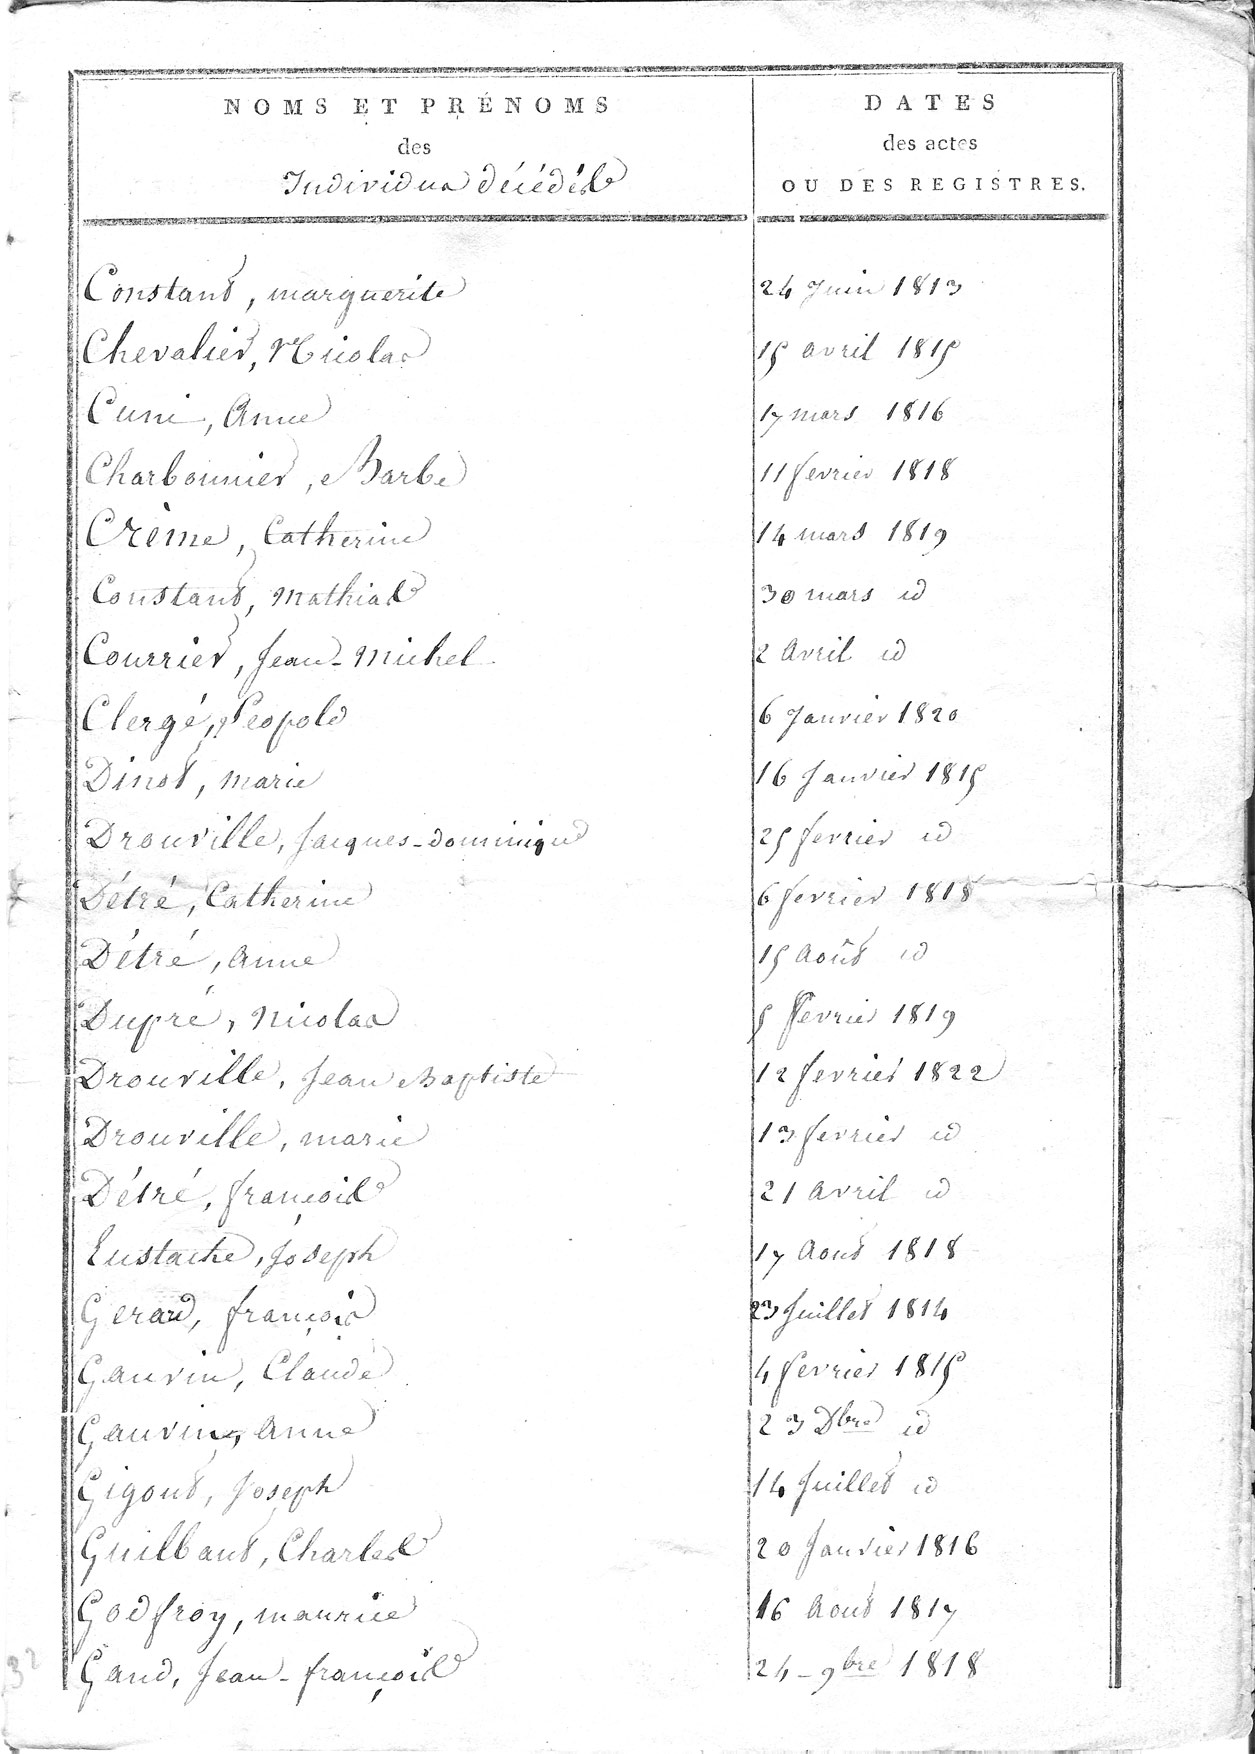 NOMS ET PRÉNOMS
des
Individus décédés
DATES
des actes
OU DES REGISTRES.
Constant, marguerite 24 Juin 1813
Chevalier, Nicolas 15 avril 1815
Cuni, Anne 17 mars 1816
Charbonnier, Barbe 11 fevrier 1818
Crème, Catherine 14 mars 1819
Constant, Mathias 30 mars id
Courrier, Jean-Michel 2 Avril id
Clergé, Léopold 6 Janvier 1820
Dinot, marie 16 Janvier 1815
Drouville, Jacques-dominique 25 fevrier id
Détré, Catherine 6 fevrier 1818
Détré, Anne 15 Août id
Dupré, Nicolas 5 fevrier 1819
Drouville, Jean Baptiste 12 fevrier 1822
Drouville, marie 13 fevrier id
Détré, françois 21 Avril id
Eustache, Joseph 17 Aout 1818
Gerard, françois 23 Juillet 1814
Gauvin, Claude 4 fevrier 1815
Gauvin, Anne 23 Dbre id
Gigout, Joseph 14 Juillet id
Guilbaut, Charles 20 Janvier 1816
Godfroy, maurice 16 Aout 1817
Gand, Jean-françois 24-9bre 1818
32